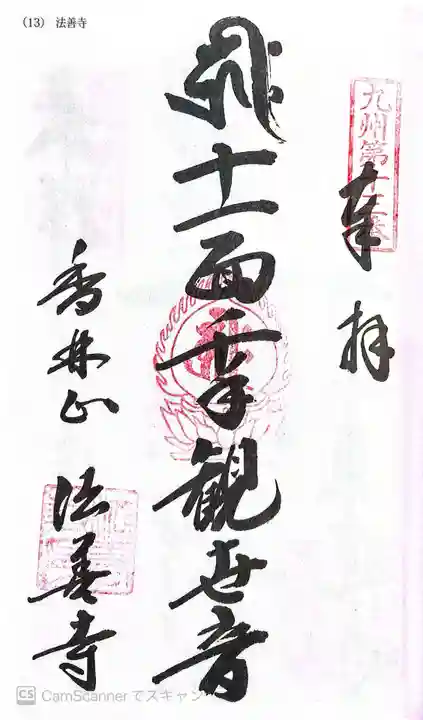 (13) 法善寺
九州第十三番
奉拝
十一面千手観世音
香林山 法善寺
CS CamScannerでスキャン